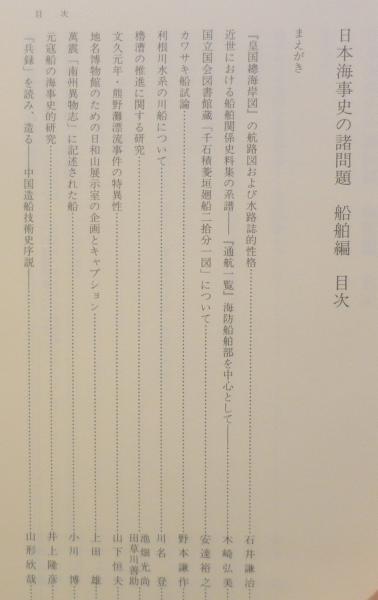 目次
日本海事史の諸問題 船舶編 目次
まえがき
『皇国總海岸図』の航路図および水路誌的性格……石井謙治
近世における船舶関係史料集の系譜――『通航一覧』海防船舶部を中心として――……木崎弘美
国立国会図書館蔵「千石積菱垣廻船二拾分一図」について……安達裕之
カワサキ船試論……野本謙作
利根川水系の川船について……川名登
櫓漕の推進に関する研究……池畑光尚 田草川善助
文久元年・熊野灘漂流事件の特異性……山下恒夫
地名博物館のための日和山展示室の企画とキャプション……上田雄
萬震「南州異物志」に記述された船……小川博
元寇船の海事史的研究……井上隆彦
『兵録』を読み、造る――中国造船技術史序説――……山形欣哉